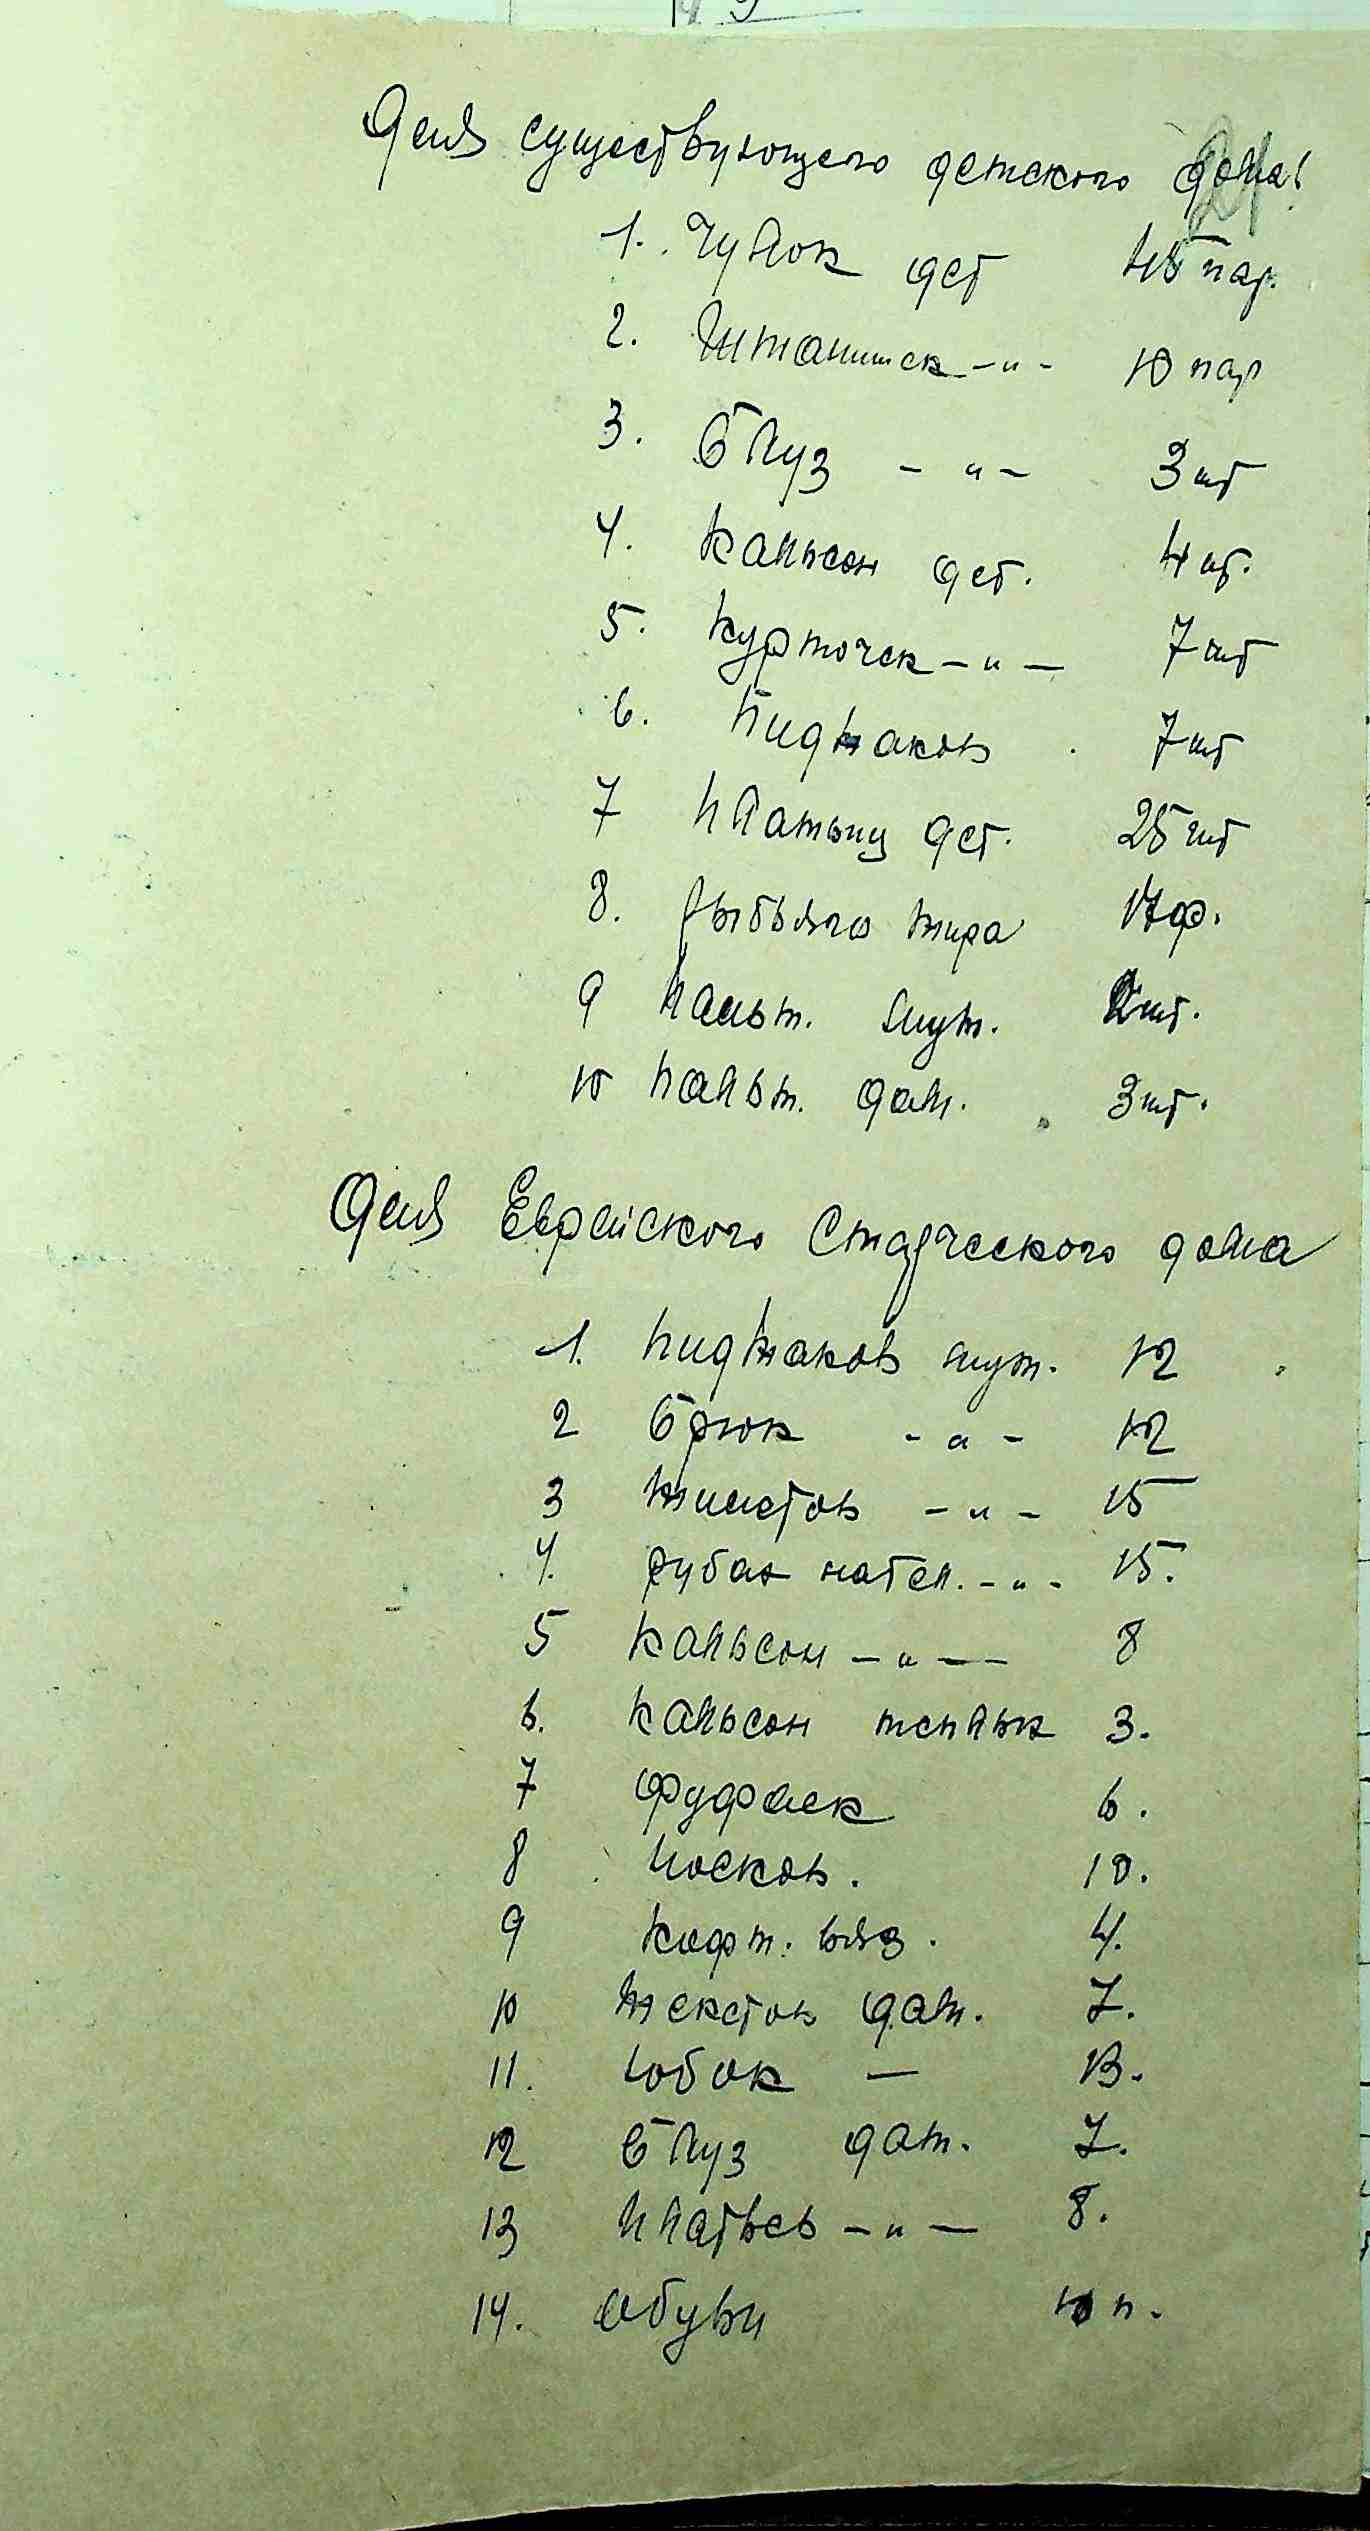 Для существующего детского дома:
1. Чулок дет 15 пар.
2. Штанишек -"- 10 пар
3. Блуз -"- 3 шт
4. Кальсон дет. 4 шт.
5. Курточек -"- 7 шт
6. Пиджаков 7 шт
7 Платьиц дет. 25 шт
8. Рыбьяго жира 17 ф.
9 Пальт. муж. 2 шт.
10 Пальт. дам. 3 шт.
Для Еврейского Старческого дома
1. Пиджаков муж. 12
2 Брюк -"- 12
3 Жилетов -"- 15
4. рубах нател. -"- 15.
5 Кальсон -"- 8
6. Кальсон теплых 3.
7 Фуфаек 6.
8 Носков. 10.
9 Кофт. вяз. 4.
10 Жакетов дам. 7.
11. Юбок — 13.
12 Блуз дам. 7.
13 Платьев -"- 8.
14. Обуви 10 п.